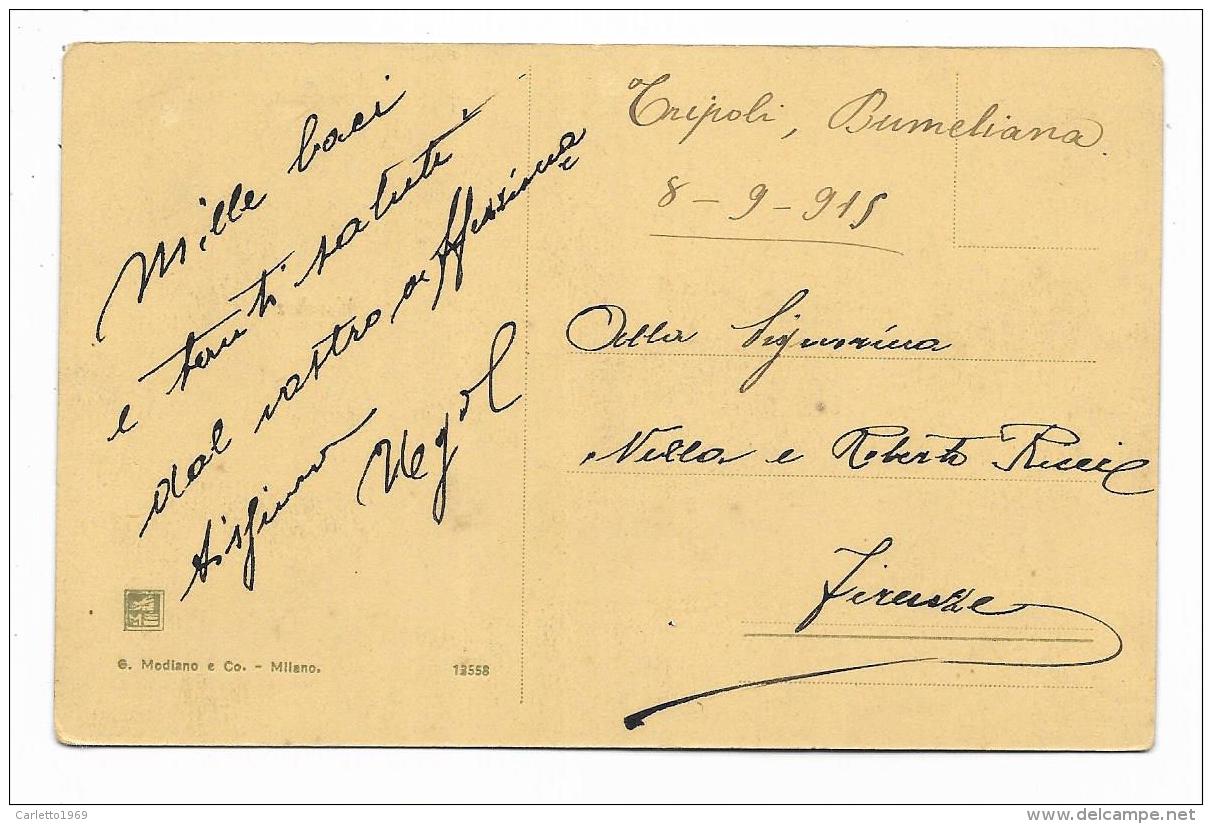 Mille baci
e tenuti saluti
dal vostro affezziona
tisfimo
Tripoli, Bumeliana.
8-9-915
Alla Signorina
Nella e Roberto Ricci
Firenze
G. Modiano e Co. - Milano.
13558
Carletto1969
delcampe.net